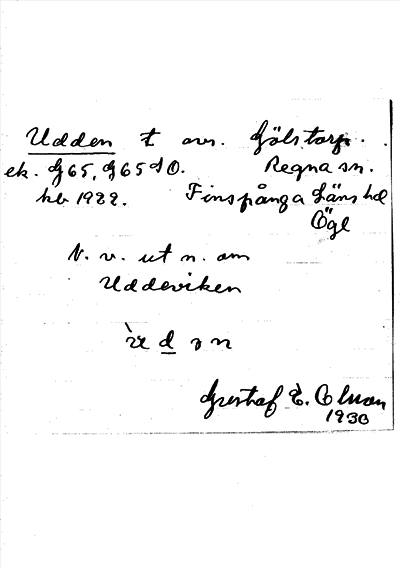 Udden t avs. Gölstorp.
ek. G65, G65SO. Regna sn.
hb 1922. Finspånga läns hd
Ögl
N. v. ut n. om
Uddeviken
Gustaf E. Olson
1930